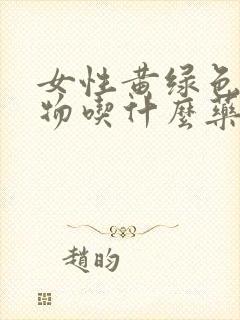 女性黄绿色
物喫什麼藥
趙昀